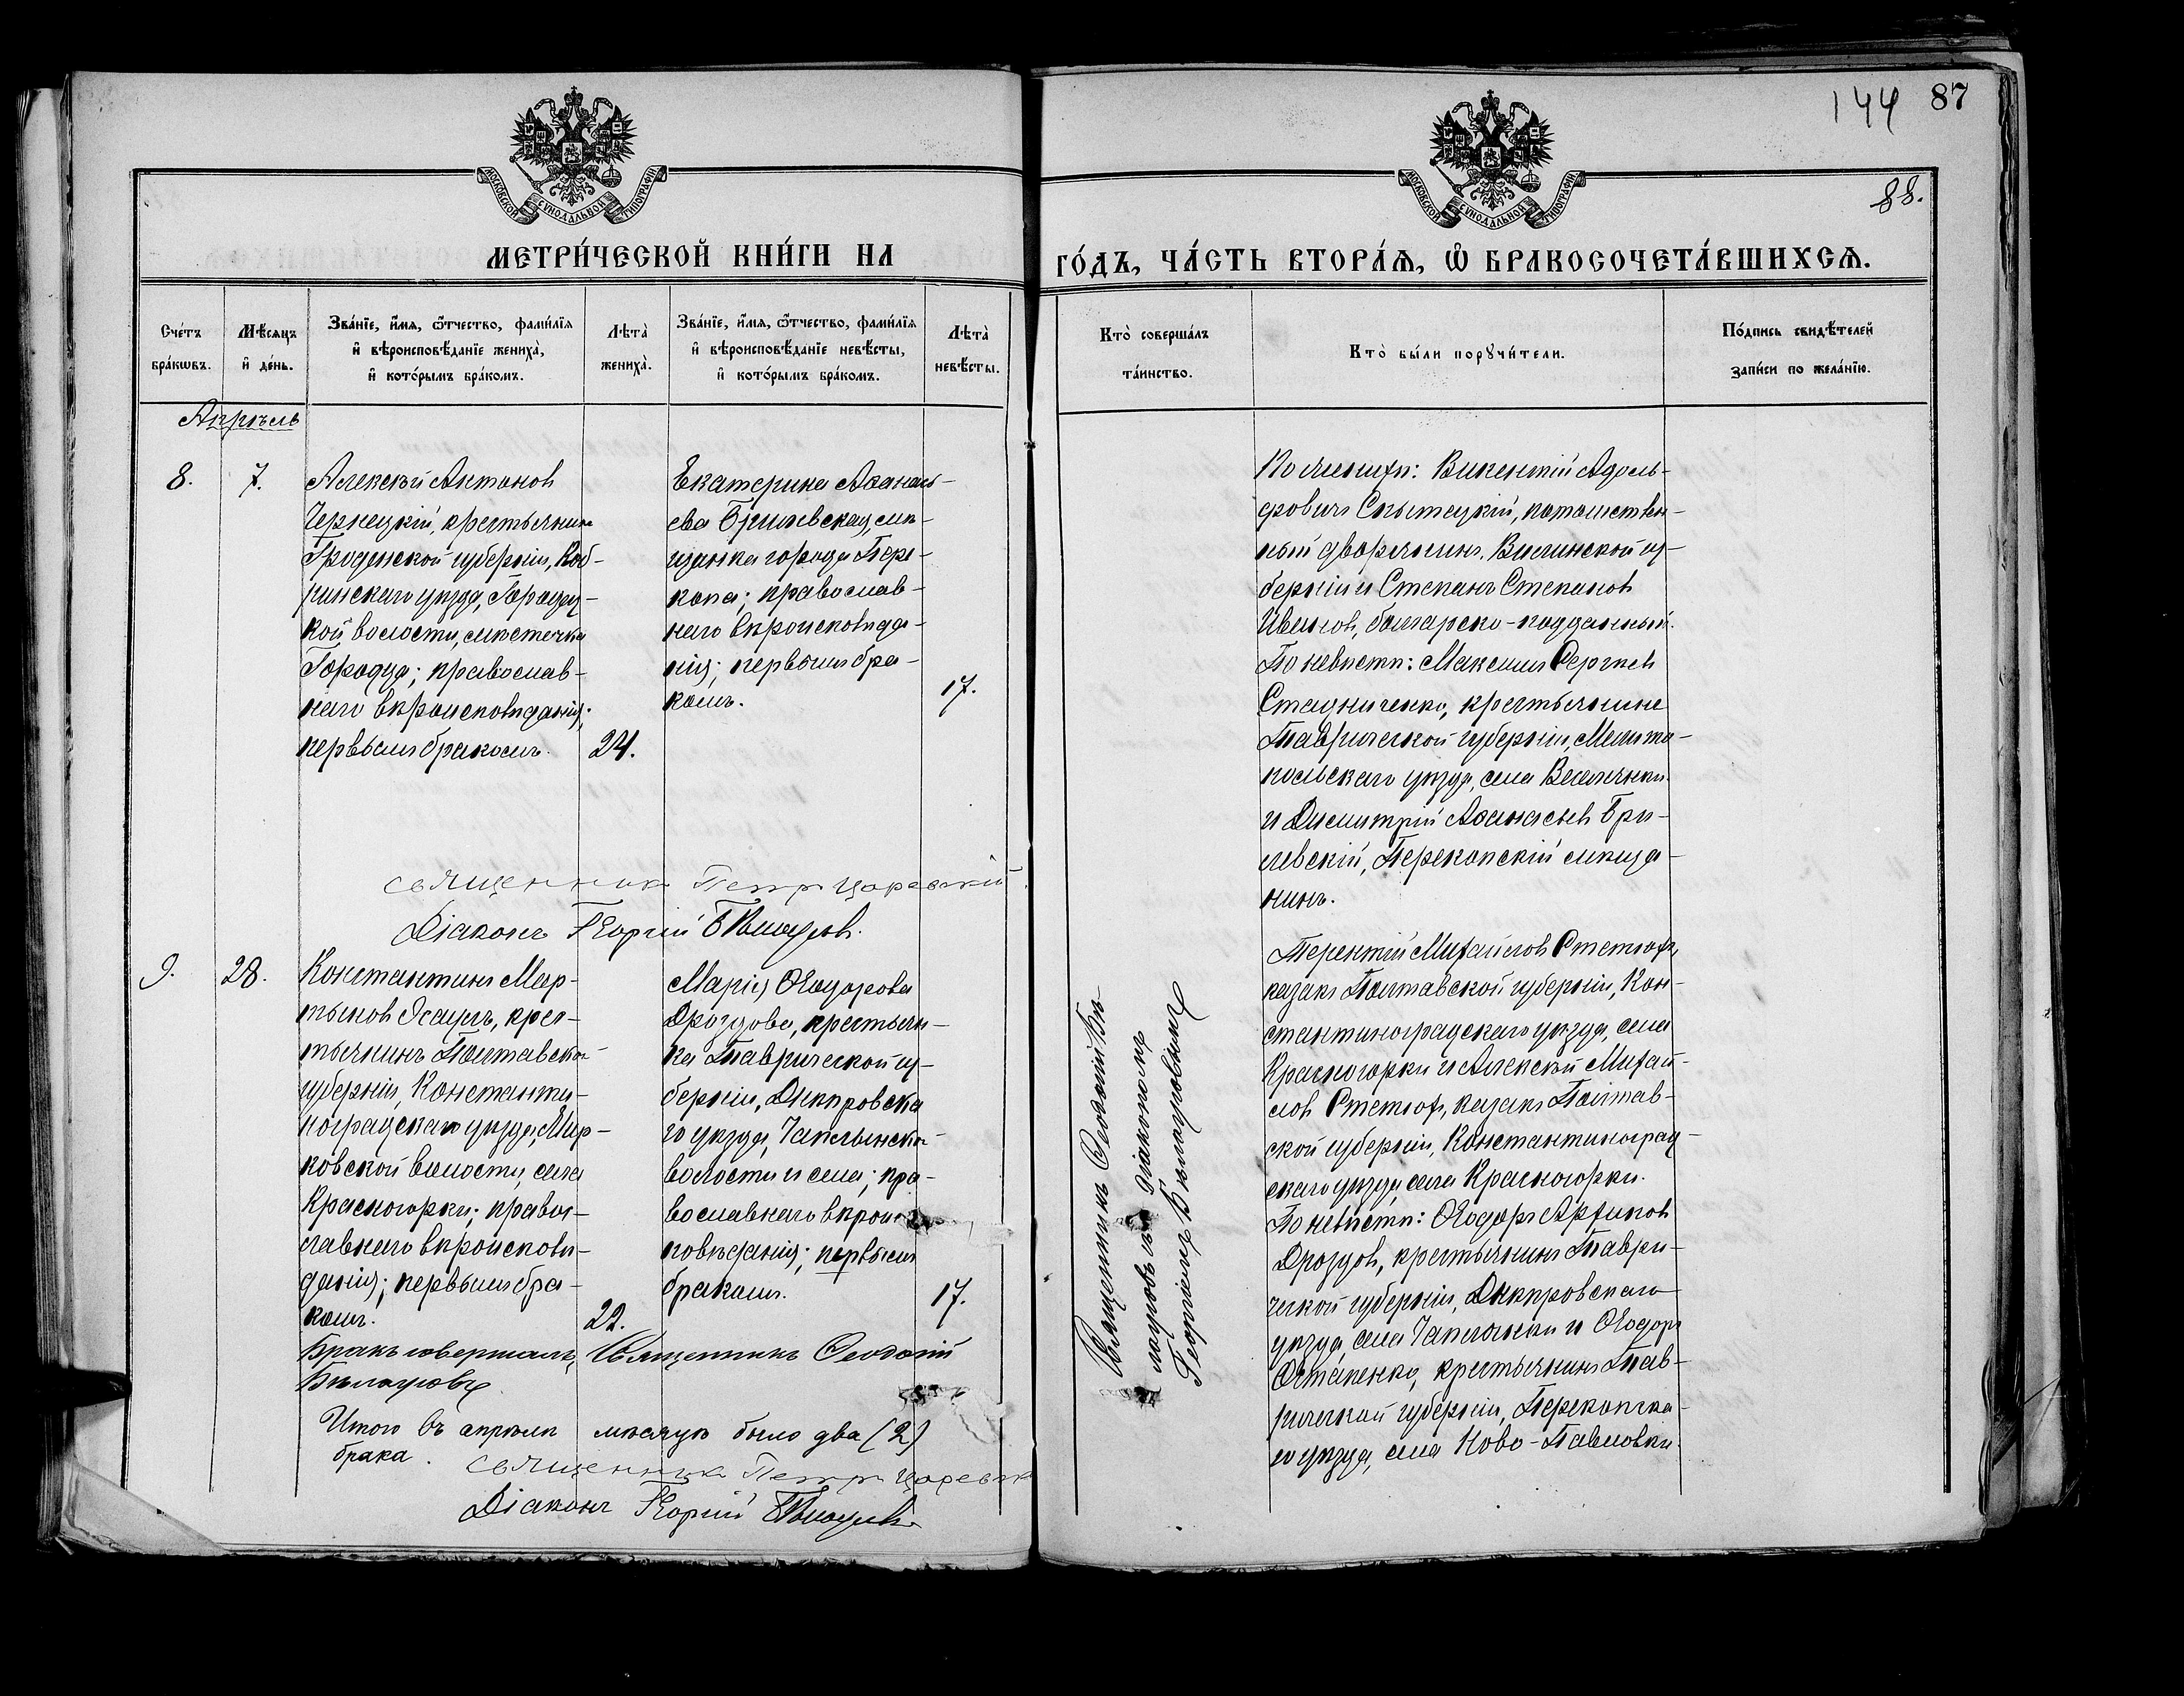 144 87
88.
МОСКОВСКОЙ СѴНОДАЛЬНОЙ ТИПОГРАФІИ
МОСКОВСКОЙ СѴНОДАЛЬНОЙ ТИПОГРАФІИ
МЕТРИ́ЧЕСКОЙ КНИ́ГИ НА
ГО́ДЪ, ЧА́СТЬ ВТОРА́Ѧ, Ѽ БРАКОСОЧЕТА́ВШИХСѦ.
Сче́тъ
бра́кѡвъ.
Мѣ́сяцъ
и҆ де́нь.
Зва́нїе, и҆́мя, ѻ҆́тчество, фами́лїя
и҆ вѣроисповѣ́данїе жениха̀,
и҆ кото́рымъ бра́комъ.
Лѣта̀
жениха̀.
Зва́нїе, и҆́мя, ѻ҆́тчество, фами́лїя
и҆ вѣроисповѣ́данїе невѣ́сты,
и҆ кото́рымъ бра́комъ.
Лѣта̀
невѣ́сты.
Кто̀ соверша́лъ
та́инство.
Кто̀ бы́ли порꙋчи́тели.
По́дпись свидѣ́телей
за́писи по жела́нїю.
Апрѣль
8.
7.
Алексѣй Антоновъ
Чернецкій, крестьянинъ
Гродненской губерніи, Коб-
ринскаго уѣзда, Городец-
кой волости, мѣстечка
Городца; православ-
наго вѣроисповѣданія;
первымъ бракомъ.
24.
Екатерина Аѳанась-
ева Брилевская, мѣ-
щанка города Пере-
копа; православ-
наго вѣроисповѣда-
нія; первымъ бра-
комъ.
17.
По женихѣ: Викентій Адоль-
фовичъ потомствен-
ный дворянинъ Виленской гу-
берніи и Степанъ Степановъ
Ивановъ, болгарско-подданный.
По невѣстѣ: Максимъ Сергѣевъ
Стадниченко, крестьянинъ
Таврической губерніи, Мелито-
польскаго уѣзда, села
и Димитрій Аѳанасьевъ Бри-
левскій, Перекопскій мѣща-
нинъ.
Священникъ Петръ Царевскій
Діаконъ Георгій Бѣлоусовъ.
9.
28.
Константинъ Мар-
тыновъ Ясауръ, крес-
тьянинъ Полтавской
губерніи, Константи-
ноградскаго уѣзда,
ковской волости, села
Красногорки; правос-
лавнаго вѣроисповѣ-
данія; первымъ бра-
комъ.
22.
Марія Ѳеодорова
Дроздова, крестьян-
ка Таврической гу-
берніи, Днѣпровска
го уѣзда, Чаплынской
волости и села; пра-
вославнаго вѣроис
повѣданія; первымъ
бракомъ.
17.
Священникъ Ѳеодосій Бѣ-
лоусовъ съ Діакономъ
Георгіемъ Бѣлоусовымъ
Терентій Михайловъ Стетюха,
казакъ Полтавской губерніи, Кон-
стантиноградскаго уѣзда, села
Красногорки и Алексѣй Михай-
ловъ Стетюха, казакъ Полтав-
ской губерніи, Константиноград-
скаго уѣзда, села Красногорки.
По невѣстѣ: Ѳеодоръ Архиповъ
Дроздовъ, крестьянинъ Таври-
ческой губерніи, Днѣпровскаго
уѣзда, села Чаплынки и Ѳеодоръ
Остапенко, крестьянинъ Тав-
рической губерніи, Перекопска-
го уѣзда, села Ново-Павловки.
Бракъ совершалъ Священникъ Ѳеодосій
Бѣлоусовъ
Итого въ апрѣлѣ мѣсяцѣ было два (2)
брака.
Священникъ Петръ Царевскій
Діаконъ Георгій Бѣлоусовъ